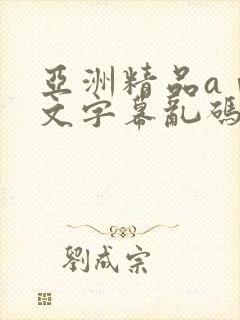 亞洲精品a
文字幕亂碼
劉成宗